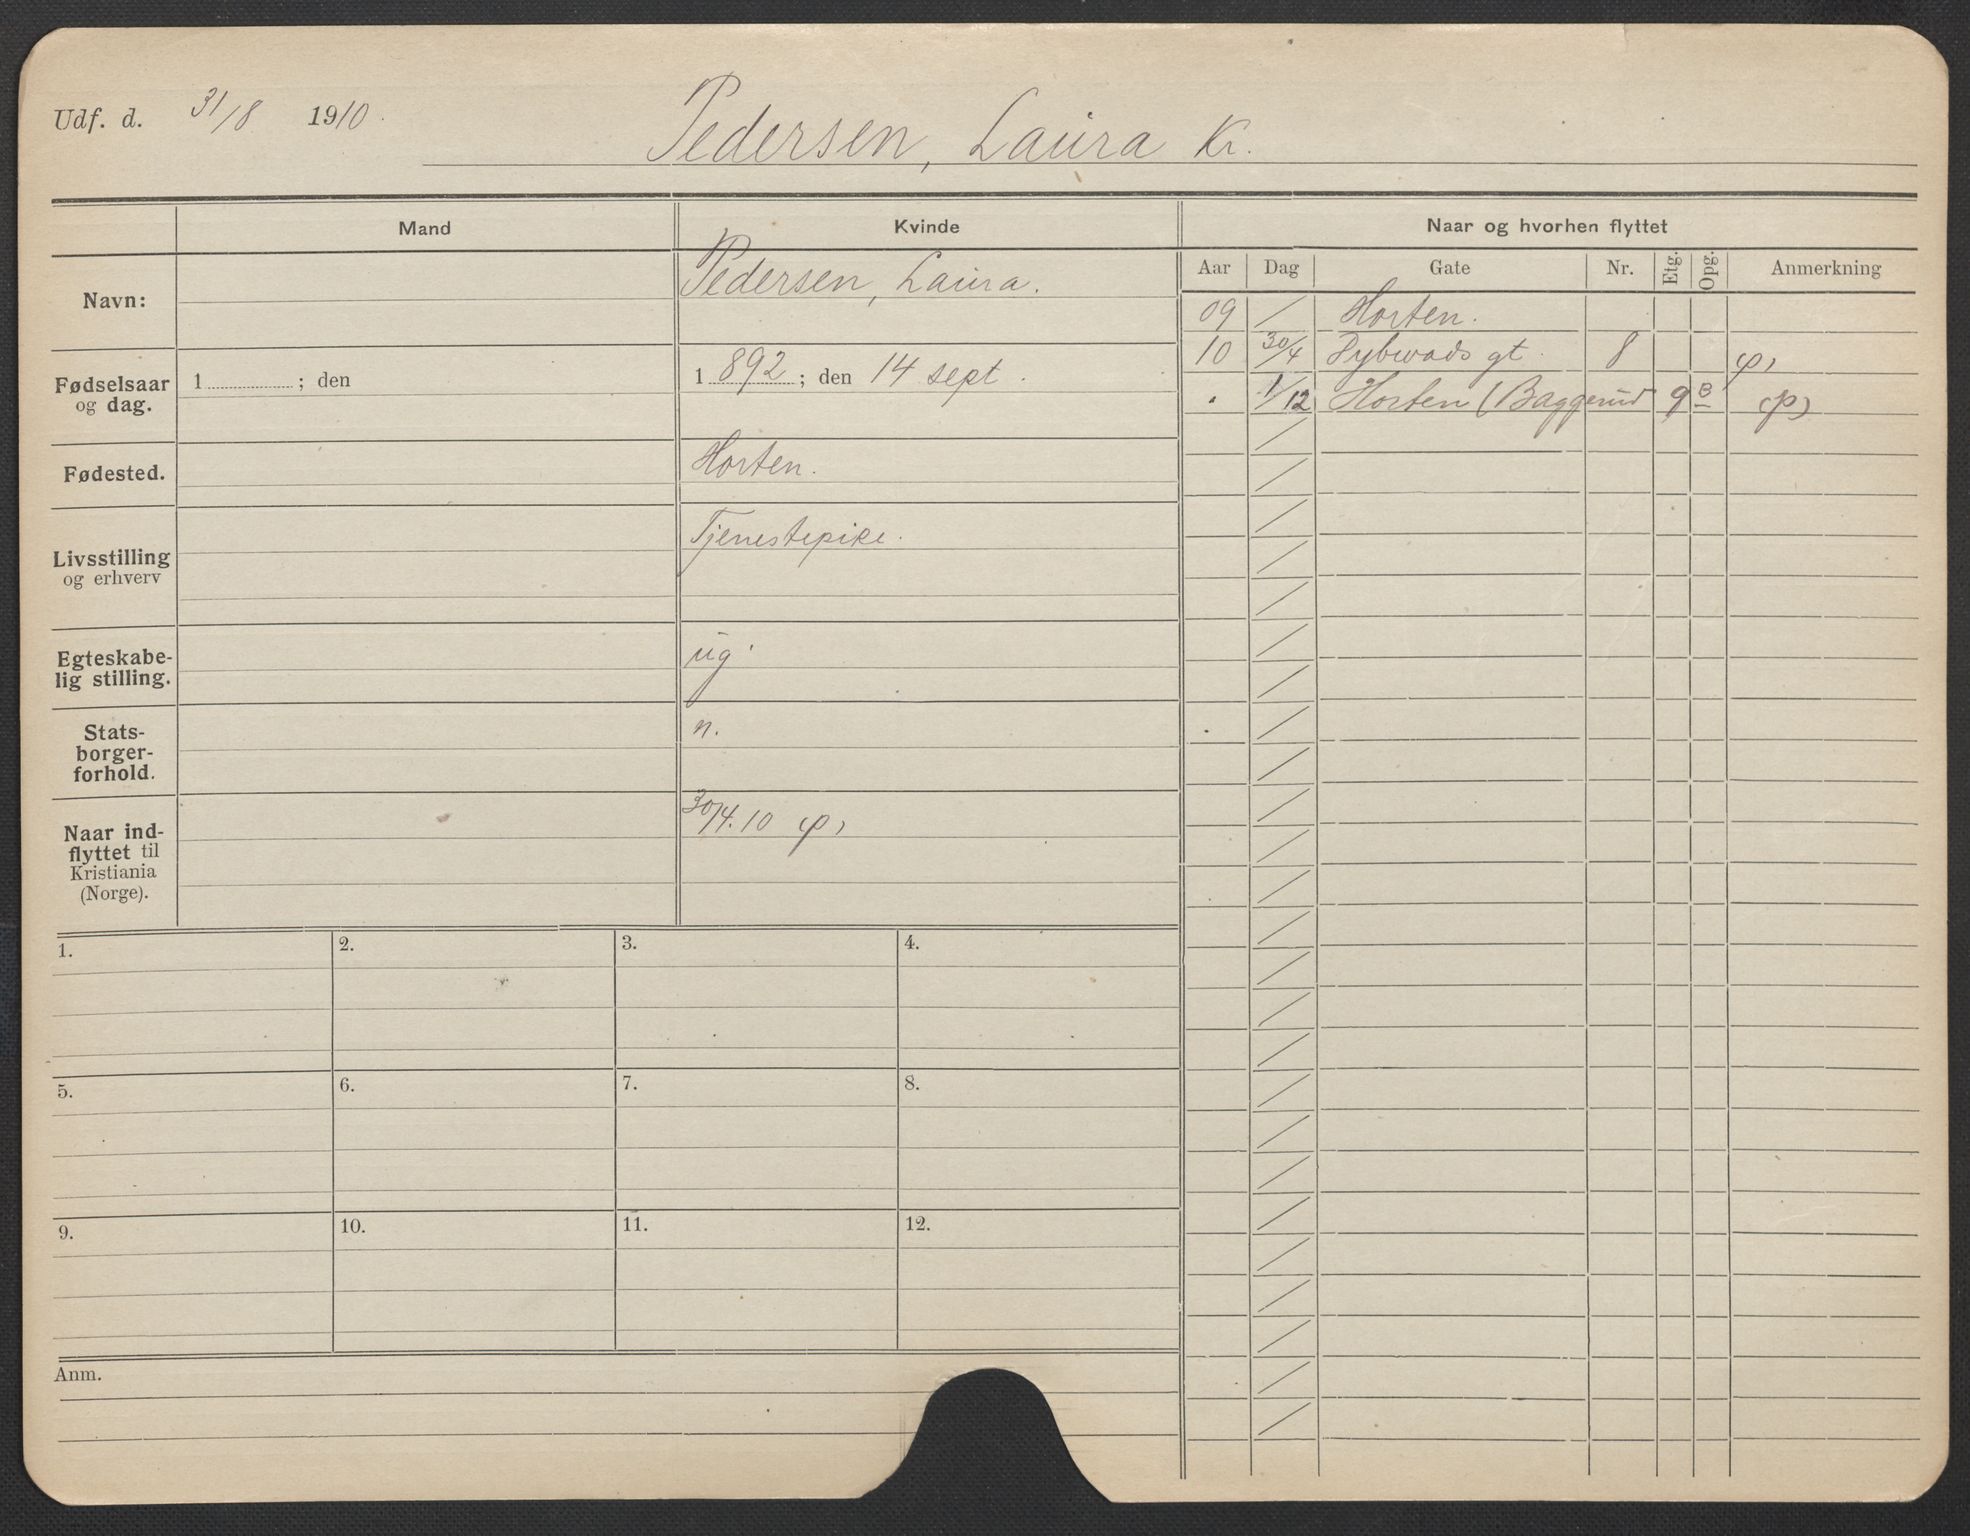 Udf. d. 31/8 1910.
Pedersen, Laura Kr.
Mand Kvinde Naar og hvorhen flyttet
Aar Dag Gate Nr. Etg. Opg. Anmerkning
Navn: Pedersen, Laura.
Fødselsaar og dag. 1 ; den 1 892 ; den 14 sept.
Fødested. Horten.
Livsstilling og erhverv Tjenestepike.
Egteskabe-
lig stilling. ug.
Stats-
borger-
forhold. n.
Naar ind-
flyttet til
Kristiania
(Norge). 30/4.10
09 / Horten.
10 30/4 Dybwads gt. 8
1/12 Horten (Baggerud 9 B
1. 2. 3. 4.
5. 6. 7. 8.
9. 10. 11. 12.
Anm.